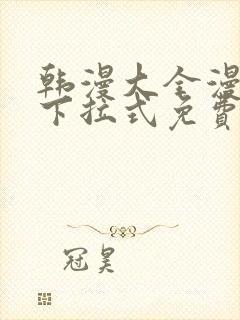 韩漫大全漫
下拉式免費
冠昊